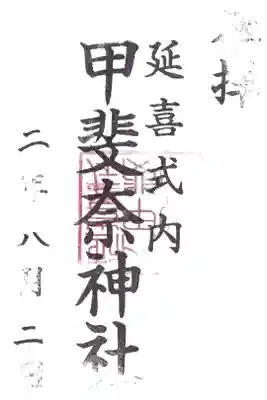 拝
延喜式内
甲斐奈神社
二年八月二日